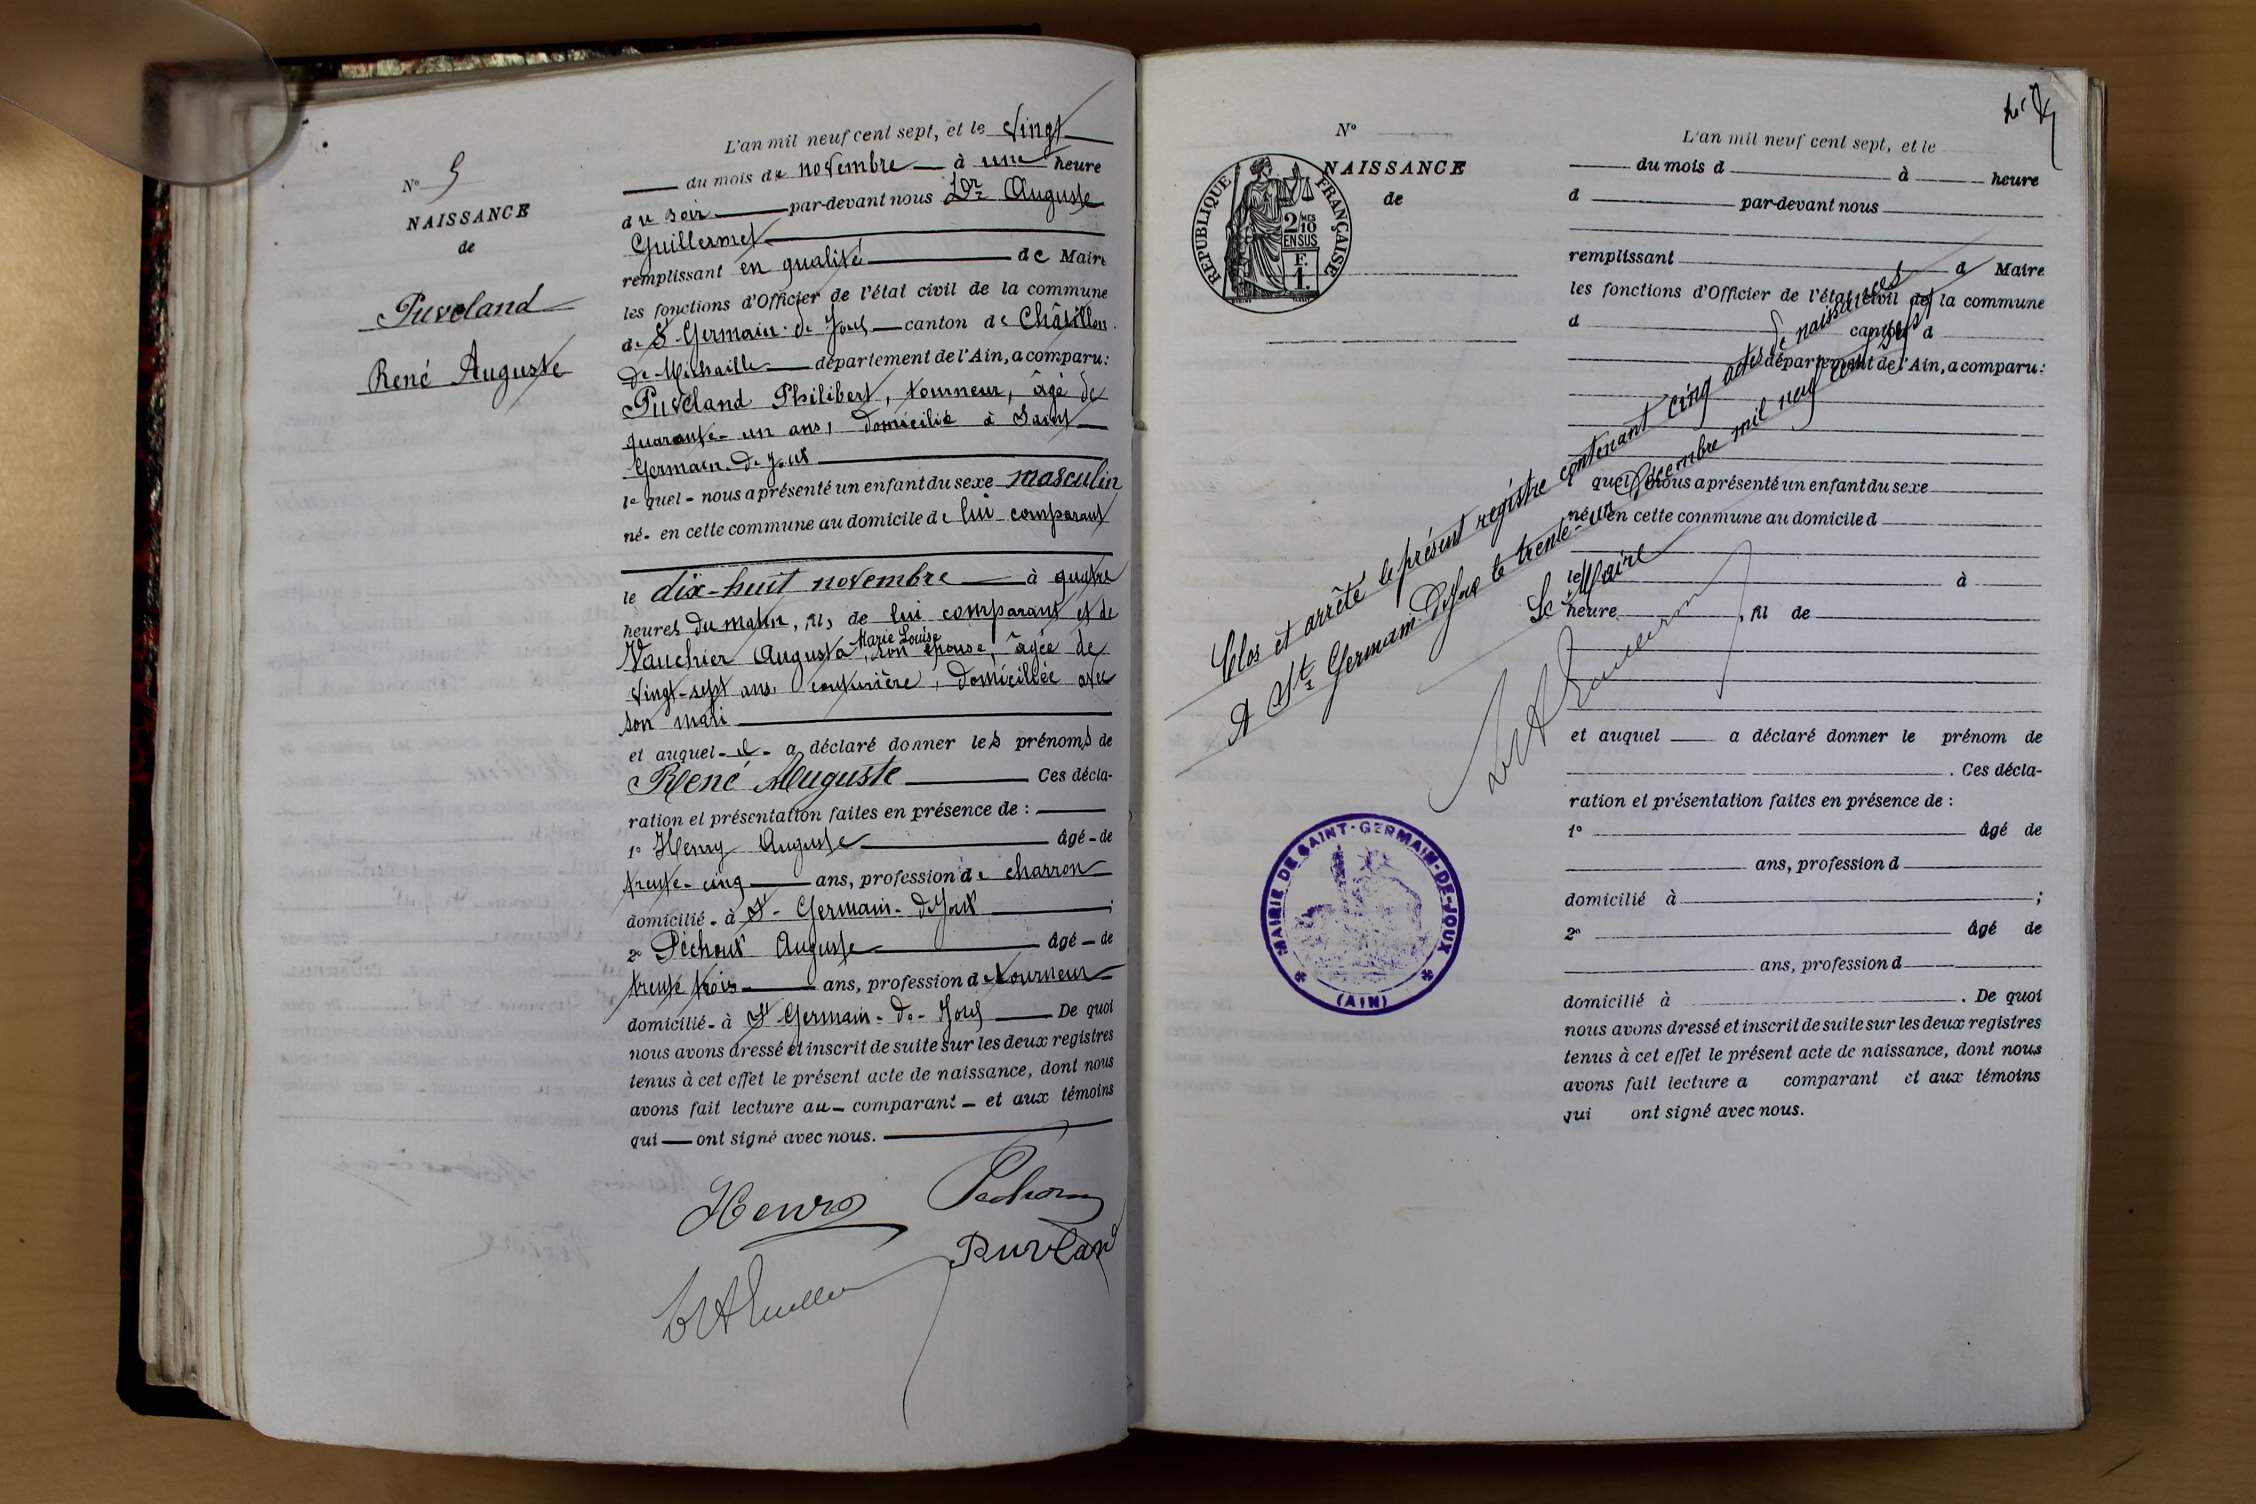 N° 5
NAISSANCE
de
Puveland
René Auguste
L'an mil neuf cent sept, et le vingt
du mois de novembre à une heure
du soir par-devant nous Dr Auguste
Guillermet
remplissant en qualité de Maire
les fonctions d'Officier de l'état civil de la commune
de St Germain-de-Joux canton de Châtillon
de Michaille département de l'Ain, a comparu:
Puveland Philibert, tourneur, âgé de
quarante-un ans, domicilié à Saint
Germain-de-Joux
lequel - nous a présenté un enfant du sexe masculin
né - en cette commune au domicile de lui comparant
le dix-huit novembre à quatre
heures du matin, fils de lui comparant et de
Marie Louise
Vauchier Augusta, son épouse, âgée de
vingt-sept ans, couturière, domiciliée avec
son mari
et auquel - il - a déclaré donner les prénoms de
René Auguste Ces décla-
ration et présentation faites en présence de :
1° Henry Auguste âgé - de
trente-cinq ans, profession de charron
domicilié - à St - Germain - de Joux ;
2° Péchoux Auguste âgé - de
trente trois ans, profession de tourneur
domicilié - à St Germain - de - Joux De quoi
nous avons dressé et inscrit de suite sur les deux registres
tenus à cet effet le présent acte de naissance, dont nous
avons fait lecture au - comparant - et aux témoins
qui - ont signé avec nous.
Henry Pechoux
Puveland
N°
NAISSANCE
de
RÉPUBLIQUE FRANÇAISE
2/10 MES
EN SUS
F.
1.
L'an mil neuf cent sept, et le
du mois d à heure
d par-devant nous
remplissant d Maire
les fonctions d'Officier de l'état civil de la commune
d canton d
département de l'Ain, a comparu:
quel nous a présenté un enfant du sexe
né en cette commune au domicile d
le à
heure , fil de
et auquel a déclaré donner le prénom de
. Ces décla-
ration et présentation faites en présence de :
1° âgé de
ans, profession d
domicilié à ;
2° âgé de
ans, profession d
domicilié à . De quoi
nous avons dressé et inscrit de suite sur les deux registres
tenus à cet effet le présent acte de naissance, dont nous
avons fait lecture a comparant et aux témoins
qui ont signé avec nous.
Clos et arrêté le présent registre contenant cinq actes de naissances
A St Germain-de-Joux le trente-un Décembre mil neuf cent sept
Le Maire
MAIRIE DE SAINT-GERMAIN-DE-JOUX
(AIN)